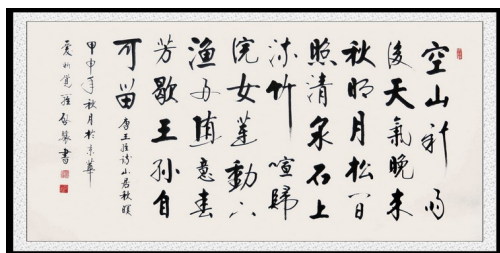 空山新雨
後天氣晚来
秋明月松间
照清泉石上
流竹喧歸
浣女莲動下
渔舟随意春
芳歇王孫自
可留
唐王维诗山居秋暝
甲申年秋月於京華
爱新覺羅書